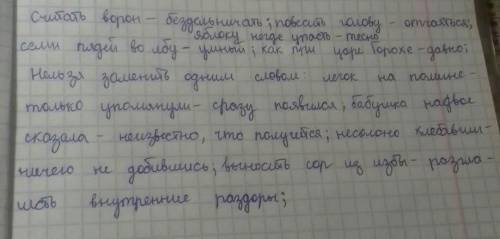 Считать ворон - бездельничать; повесить голову - отчаяться;
яблоку негде упасть - тесно
семи пядей во лбу - умный; как при царе Горохе - давно;
Нельзя заменить одним словом: легок на помине -
только упомянули - сразу появился; бабушка надвое
сказала - неизвестно, что получится; несолоно хлебавши -
ничего не добившись; выносить сор из избы - разгла -
шать внутренние раздоры;